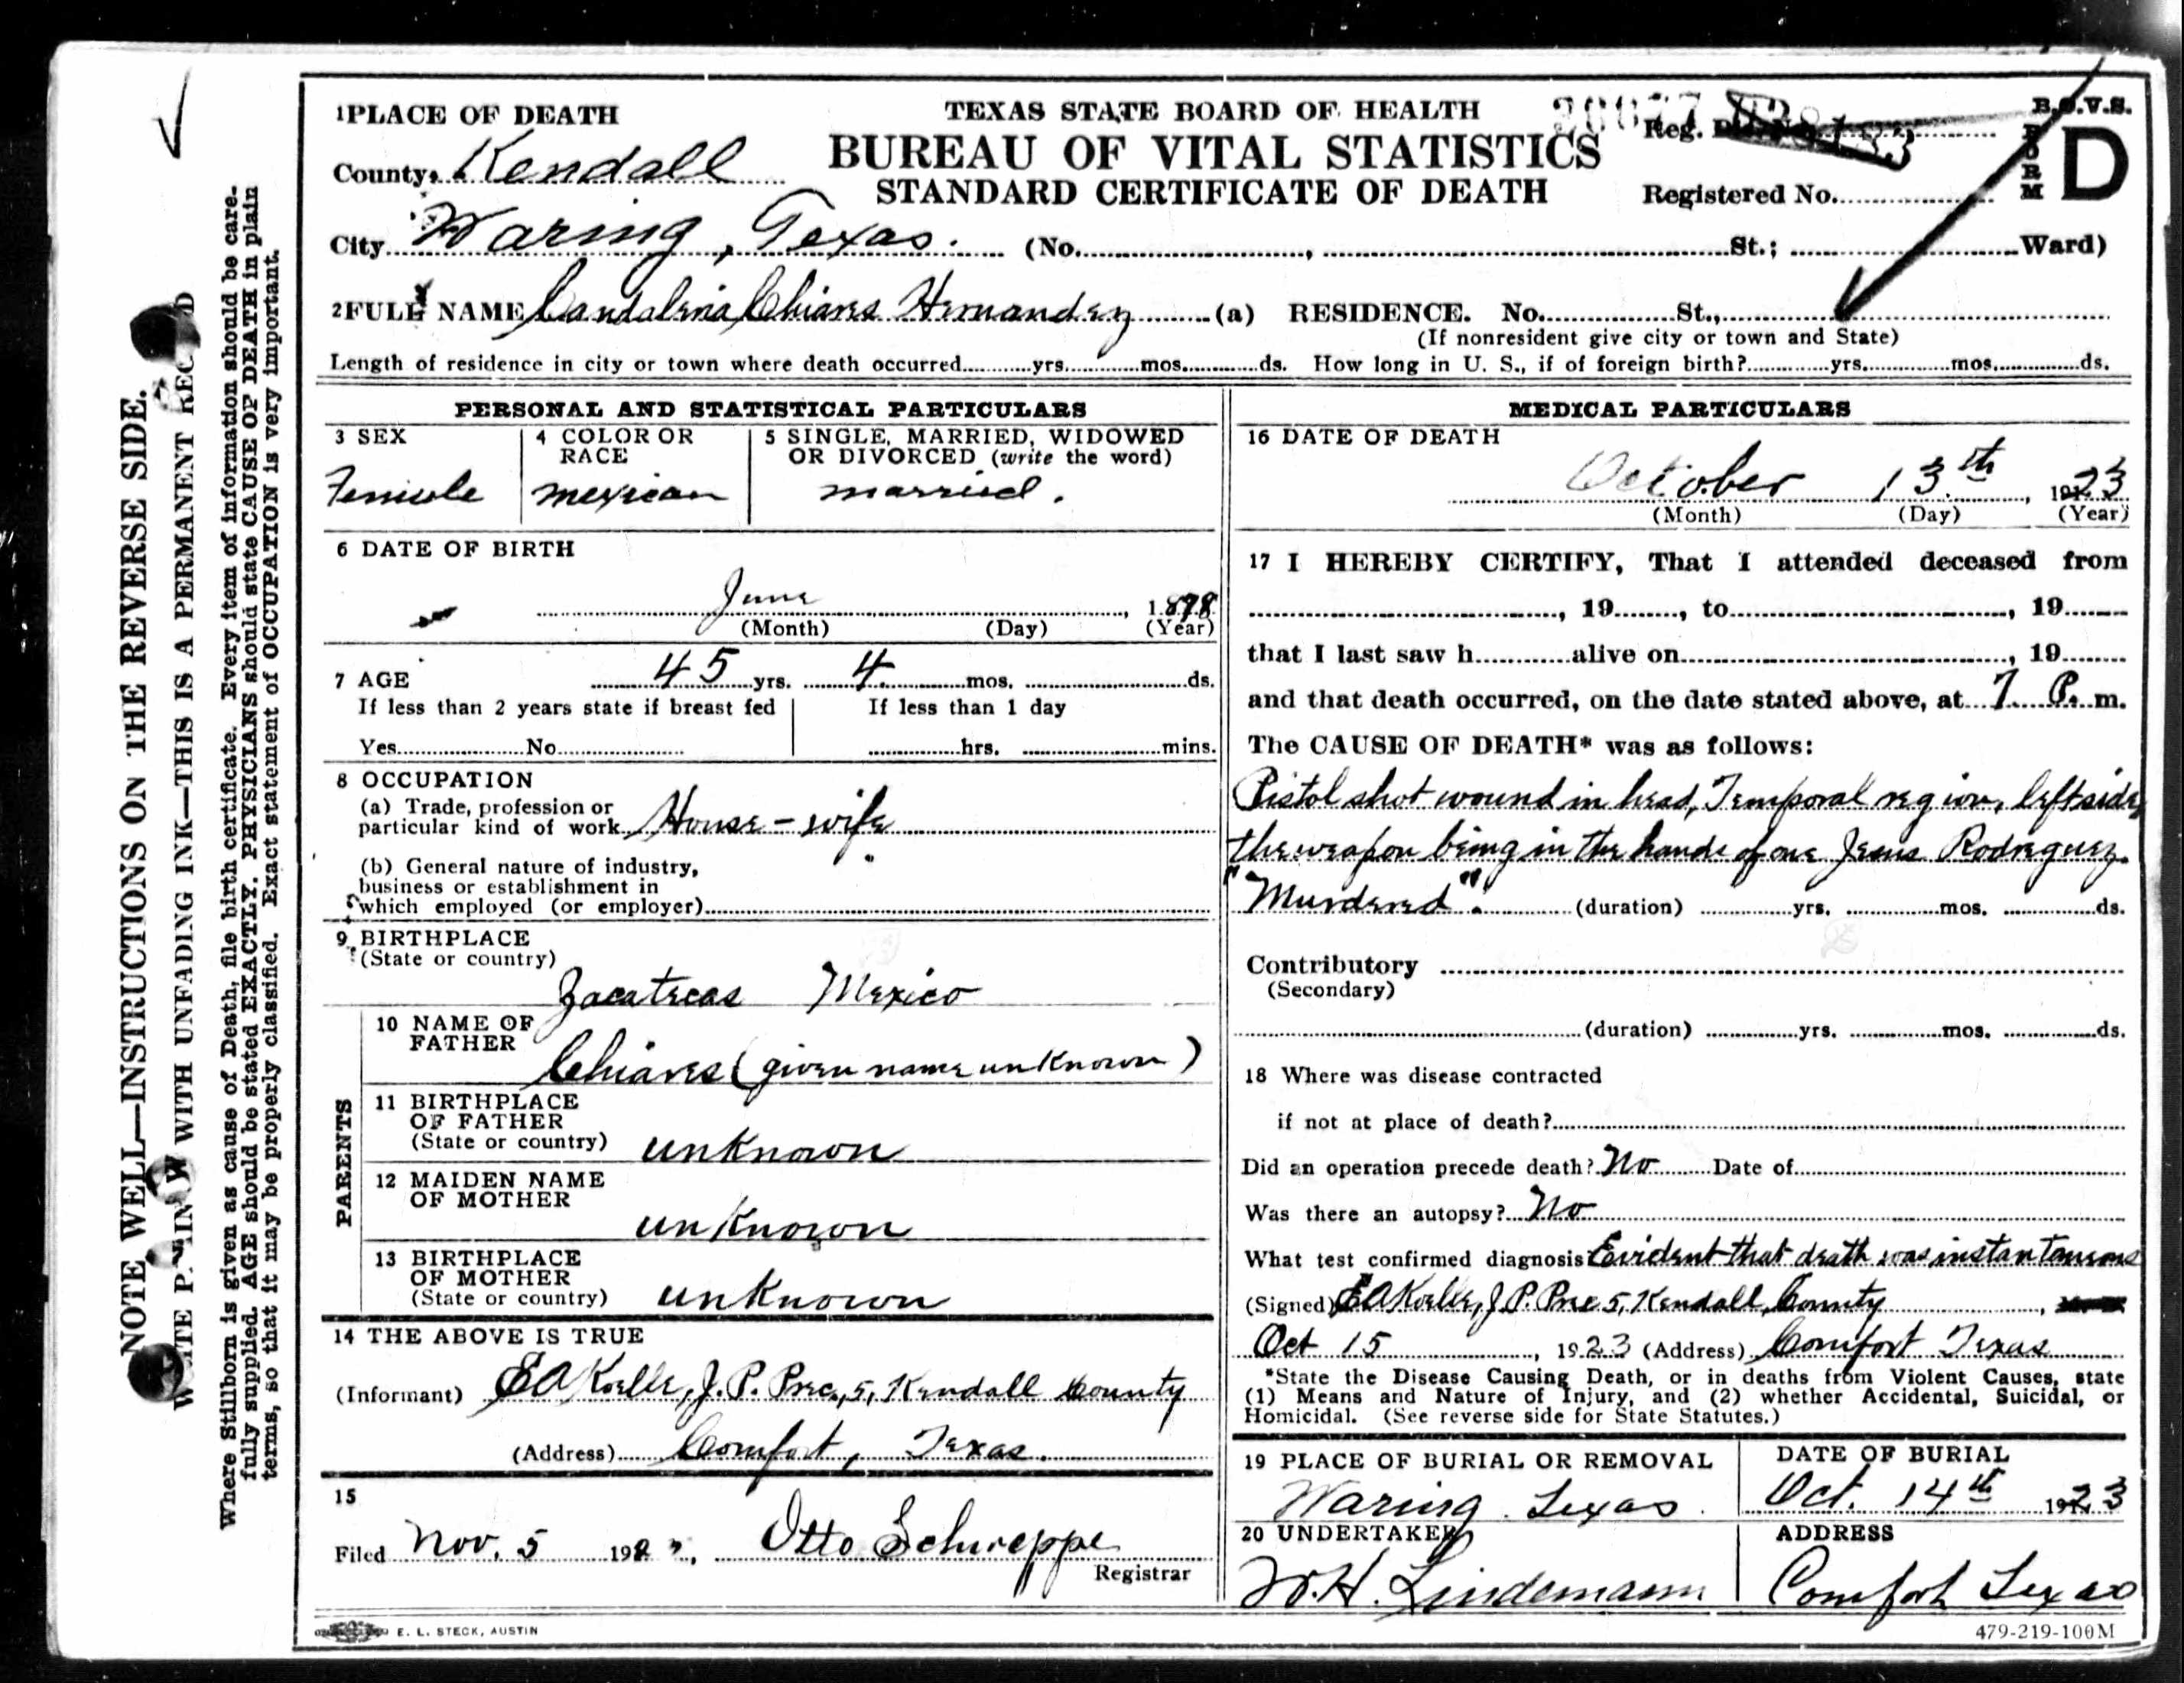 1 PLACE OF DEATH
TEXAS STATE BOARD OF HEALTH
B.O.V.S.
County Kendall
BUREAU OF VITAL STATISTICS
Reg.
FORM D
STANDARD CERTIFICATE OF DEATH
Registered No.
City Waring, Texas. (No. , St.; Ward)
2 FULL NAME Chiaves Hernandez (a) RESIDENCE. No. St.,
(If nonresident give city or town and State)
Length of residence in city or town where death occurred yrs. mos. ds. How long in U. S., if of foreign birth? yrs. mos. ds.
PERSONAL AND STATISTICAL PARTICULARS
3 SEX
Female
4 COLOR OR RACE
mexican
5 SINGLE, MARRIED, WIDOWED
OR DIVORCED (write the word)
married.
6 DATE OF BIRTH
June , 1878
(Month) (Day) (Year)
7 AGE 45 yrs. 4 mos. ds.
If less than 2 years state if breast fed
Yes No
If less than 1 day
hrs. mins.
8 OCCUPATION
(a) Trade, profession or
particular kind of work House-wife
(b) General nature of industry,
business or establishment in
which employed (or employer)
9 BIRTHPLACE
(State or country)
Zacatecas Mexico
PARENTS
10 NAME OF
FATHER
Chiaves (given name unknown)
11 BIRTHPLACE
OF FATHER
(State or country) unknown
12 MAIDEN NAME
OF MOTHER
unknown
13 BIRTHPLACE
OF MOTHER
(State or country) unknown
14 THE ABOVE IS TRUE
(Informant) EA Koelle, J. P. Prec, 5, Kendall County
(Address) Comfort, Texas.
15
Filed Nov. 5 192 , Otto Schweppe
Registrar
MEDICAL PARTICULARS
16 DATE OF DEATH
October 13th, 1923
(Month) (Day) (Year)
17 I HEREBY CERTIFY, That I attended deceased from
, 19 , to , 19
that I last saw h alive on , 19
and that death occurred, on the date stated above, at 7 P. m.
The CAUSE OF DEATH* was as follows:
Pistol shot wound in head, Temporal region, left side,
the weapon being in the hands of one Jesus Rodreguez.
"Murdered". (duration) yrs. mos. ds.
Contributory
(Secondary)
(duration) yrs. mos. ds.
18 Where was disease contracted
if not at place of death?
Did an operation precede death? No Date of
Was there an autopsy? No
What test confirmed diagnosis Evident that death was instantaneous
(Signed) EA Koelle, J. P. Prec 5, Kendall, County
Oct 15, 1923 (Address) Comfort Texas
*State the Disease Causing Death, or in deaths from Violent Causes, state
(1) Means and Nature of Injury, and (2) whether Accidental, Suicidal, or
Homicidal. (See reverse side for State Statutes.)
19 PLACE OF BURIAL OR REMOVAL
Waring Texas
DATE OF BURIAL
Oct. 14th 1923
20 UNDERTAKER
W.H. Lindemann
ADDRESS
Comfort Texas
E. L. STECK, AUSTIN
479-219-100M
NOTE WELL—INSTRUCTIONS ON THE REVERSE SIDE.
WITH UNFADING INK—THIS IS A PERMANENT
Where Stillborn is given as cause of Death, file birth certificate. Every item of information should be care-
fully supplied. AGE should be stated EXACTLY. PHYSICIANS should state CAUSE OF DEATH in plain
terms, so that it may be properly classified. Exact statement of OCCUPATION is very important.